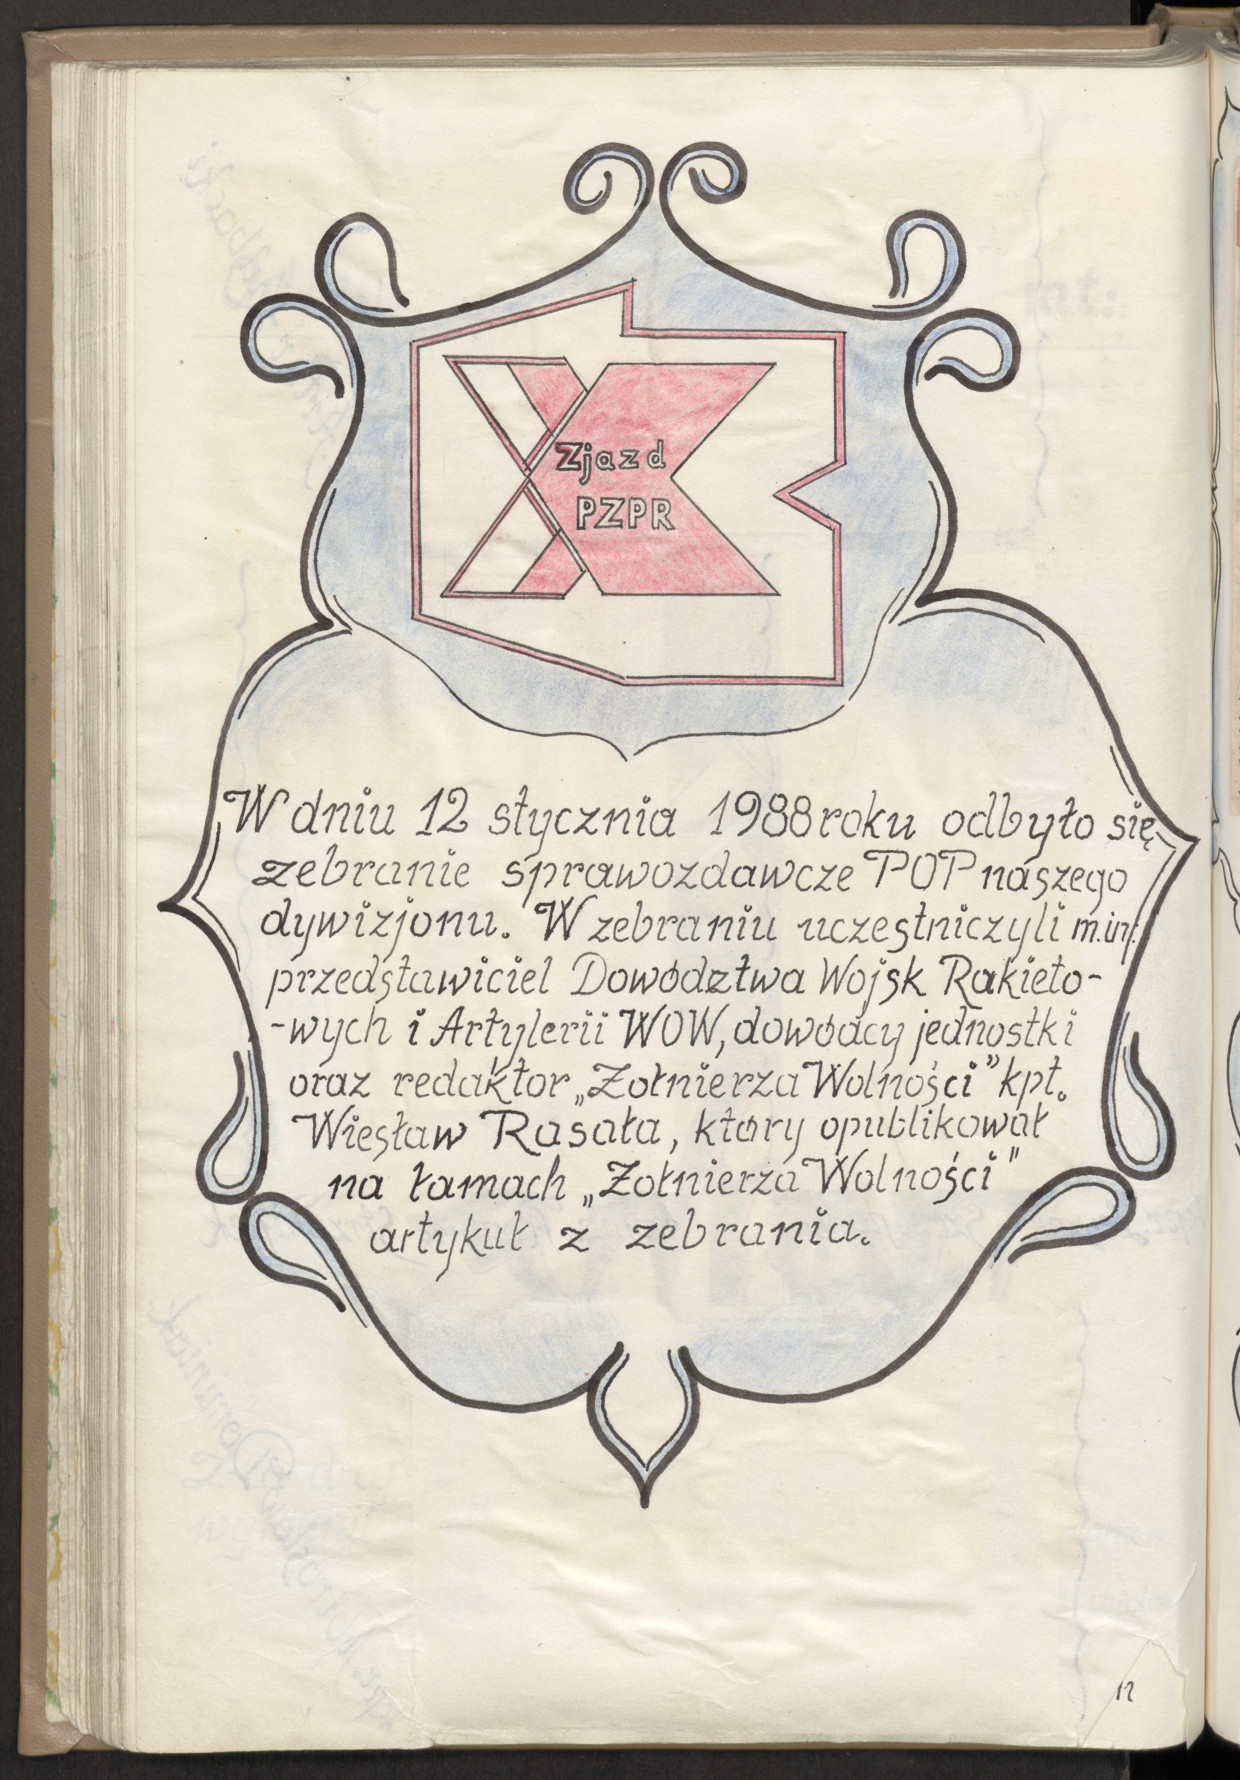 X
Zjazd
PZPR
W dniu 12 stycznia 1988 roku odbyło się
zebranie sprawozdawcze POP naszego
dywizjonu. W zebraniu uczestniczyli m.in.
przedstawiciel Dowództwa Wojsk Rakieto-
-wych i Artylerii WOW, dowódcy jednostki
oraz redaktor „Żołnierza Wolności” kpt.
Wiesław Rasała, który opublikował
na łamach „Żołnierza Wolności”
artykuł z zebrania.